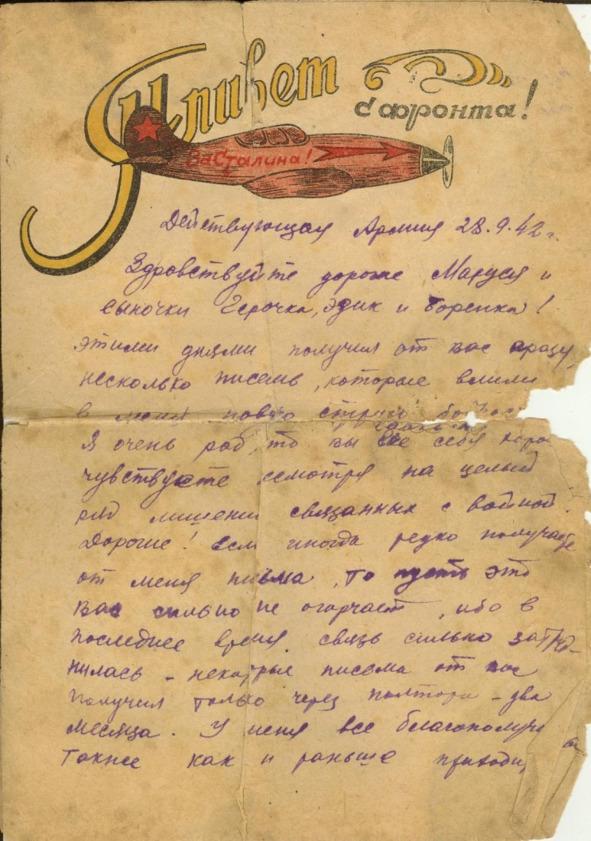 Привет
с фронта!
За Сталина!
Действующая Армия 28.9.42 г.
Здравствуйте дорогие Маруся и
сыночки Герочка, Эдик и Боренька!
этими днями получил от вас сразу
несколько писем, которые влили
в меня новую струю
Я очень рад, что вы все себя
чувствуете несмотря на целый
ряд лишений связанных с войной.
Дорогие! Если иногда редко получаете
от меня письма, то пусть это
вас сильно не огорчает, ибо в
последнее время связь сильно затруд-
нилась - некоторые письма от вас
получил только через полтора - два
месяца. У меня все благополучн
также как и раньше приходи